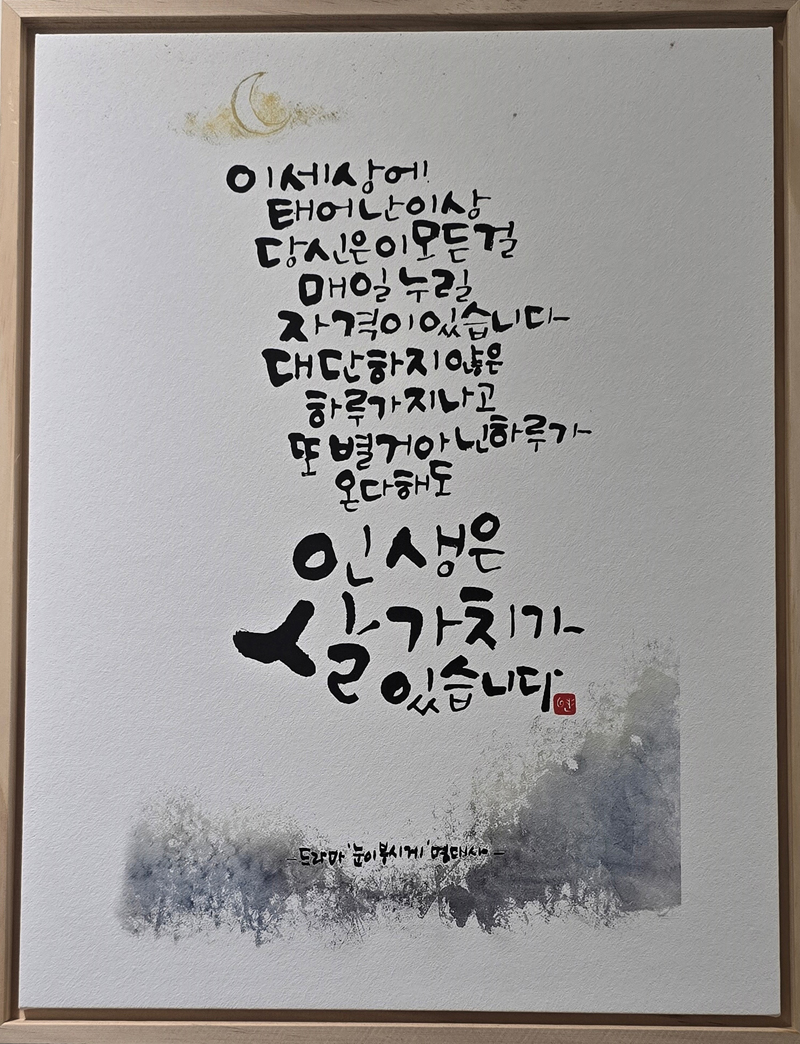 이 세상에
태어난 이상
당신은 이 모든 걸
매일 누릴
자격이 있습니다
대단하지 않은
하루가 지나고
또 별거 아닌 하루가
온다 해도
인생은
살 가치가
있습니다
-드라마 '눈이 부시게' 명대사-